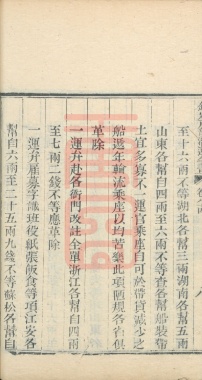 至十六兩不等湖北各幫三兩湖南各幫五兩
山東各幫自四兩至六兩不等查各幫船裝帶
土宜多寡不一運官乘座自可於帶貨減少之
船逐年輪流乘座以均苦樂此項陋規各省俱
革除
一運弁赴各衙門改註全單浙江各幫自四兩
至七兩二錢不等應革除
一運弁雇募字識班役紙張飯食等項江安各
幫自六兩至二十五兩九錢不等蘇松各幫自